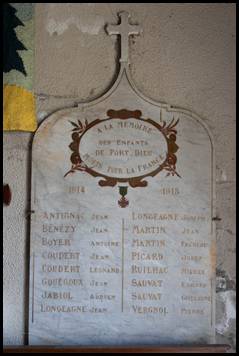 A LA MÉMOIRE
DES ENFANTS
DE PORT-DIEU
MORTS POUR LA FRANCE
1914 1918
ANTIGNA JEAN
BÉNÉZY JEAN
BOYER ANTOINE
COUDERT JEAN
COUDERT LÉONARD
JEAN
JABIOL
LONGEAGNE JEAN
LONGEAGNE JOSEPH
MARTIN JEAN
MARTIN
PICARD
RUILHAC MICHEL
SAUVAT
SAUVAT GUILLAUME
VERGNOL PIERRE